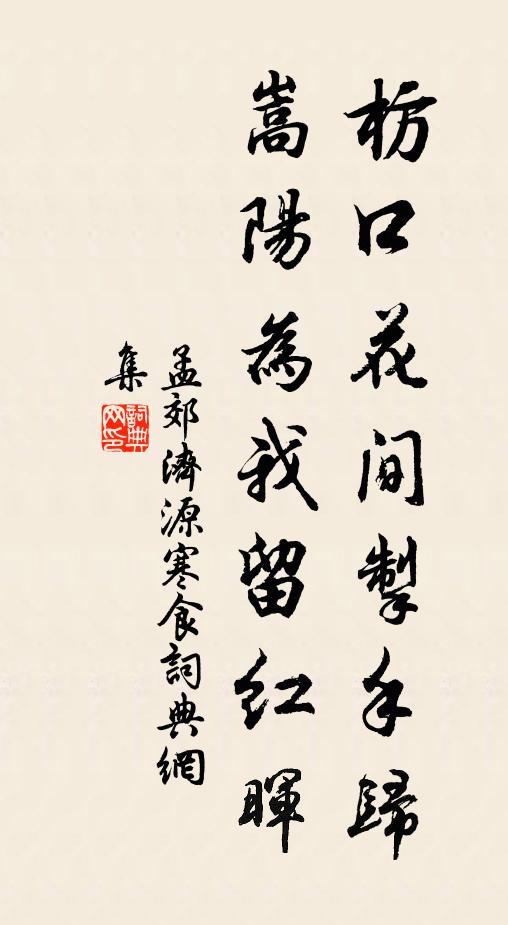 枋口花間掣手歸
嵩陽為我留紅暉
孟郊濟源寒食詞典網
集
詞典網印